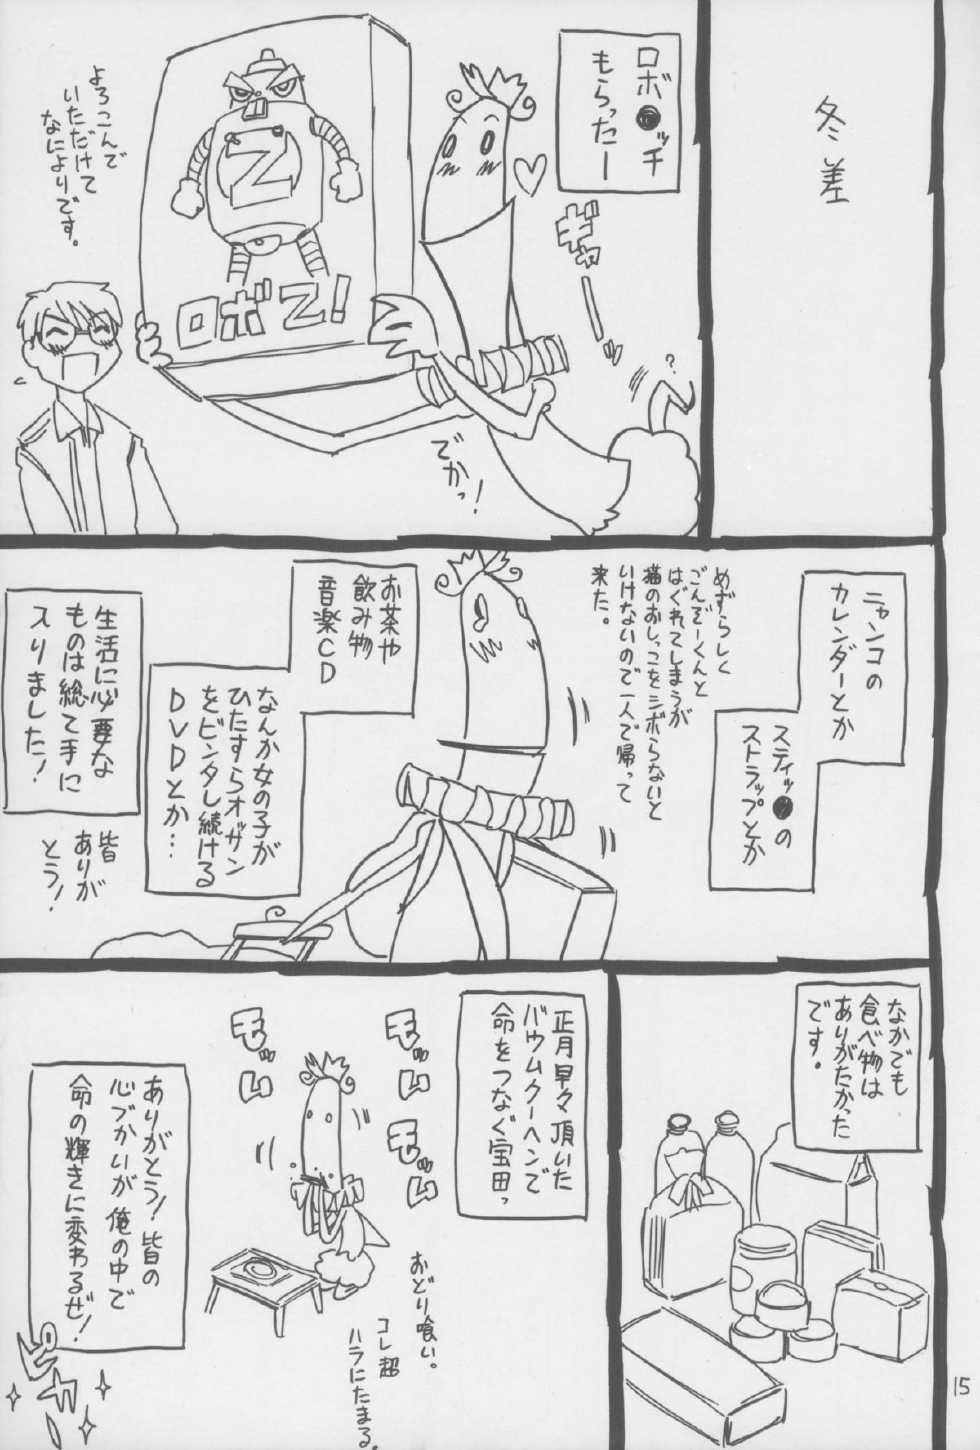 冬差
ロボ●ッチ
もらったー
ギャーッ
?
よろこんで
いただけて
なによりです。
Z
ロボZ!
でかっ!
ニャンコの
カレンダーとか
スティッ●の
ストラップとか
めずらしく
ごんぞーくんと
はぐれてしまうが
猫のおしっこをシボらないと
いけないので一人で帰って
来た。
お茶や
飲み物
音楽CD
なんか女の子が
ひたすらオッサン
をビンタし続ける
DVDとか…
生活に必要な
ものは総て手に
入りました!
皆
ありが
とう!
なかでも
食べ物は
ありがたかった
です。
正月早々頂いた
バウムクーヘンで
命をつなぐ宝田っ
モッム
モッム
モッム
おどり喰い。
コレ超
ハラにたまる。
ありがとう!皆の
心づかいが俺の中で
命の輝きに変わるぜ!
ピカーッ
15